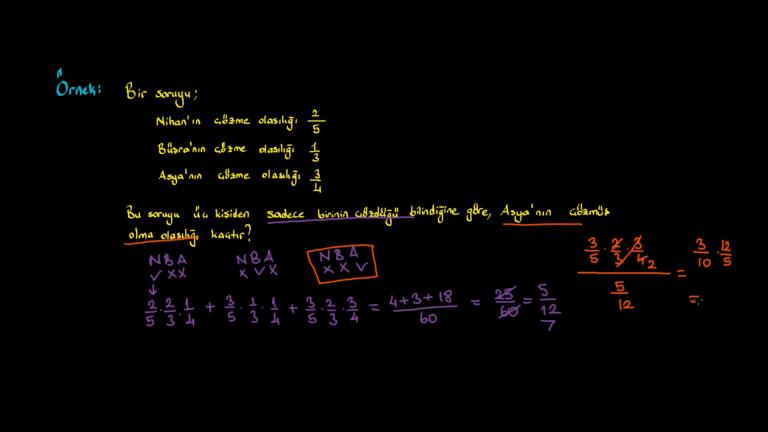 Örnek:
Bir soruyu;
Nihan'ın çözme olasılığı 2/5
Büşra'nın çözme olasılığı 1/3
Asya'nın çözme olasılığı 3/4
Bu soruyu üç kişiden sadece birinin çözdüğü bilindiğine göre, Asya'nın çözmüş
olma olasılığı kaçtır?
N B A N B A N B A
✓ x x x ✓ x x x ✓
2/5 · 2/3 · 1/4 + 3/5 · 1/3 · 1/4 + 3/5 · 2/3 · 3/4 = 4+3+18/60 = 25/60 = 5/12
7
3/5 · 2/3 · 3/4 2 / 5/12 = 3/10 · 12/5
=